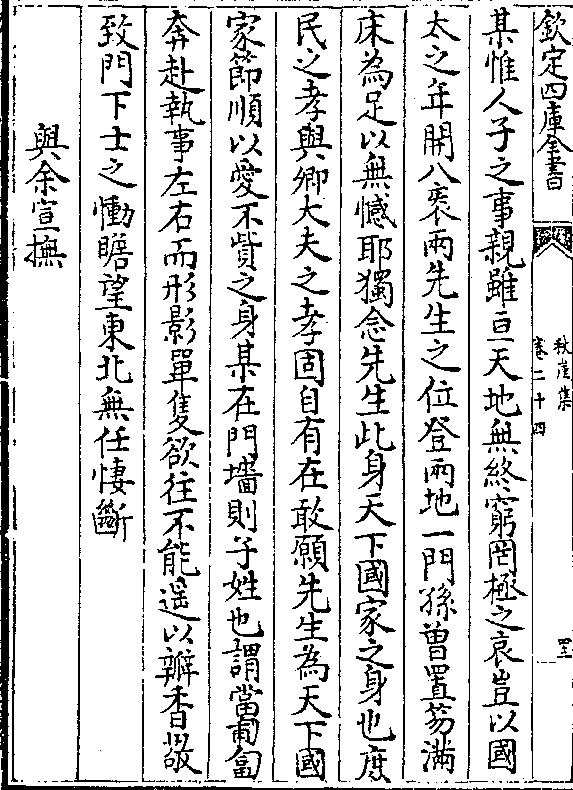 欽定四庫全書
秋崖集
卷二十四
某惟人子之事親雖亘天地無終窮罔極之哀豈以國
太之年開八袠兩先生之位登兩地一門孫曽置笏滿
床為足以無憾耶獨念先生此身天下國家之身也庶
民之孝與卿大夫之孝固自有在敢願先生為天下國
家節順以愛不貲之身某在門墻則子姓也謂當匍匐
奔赴執事左右而形影單隻欲往不能遥以瓣香㪚
致門下士之慟瞻望東北無任悽斷
與余宣撫